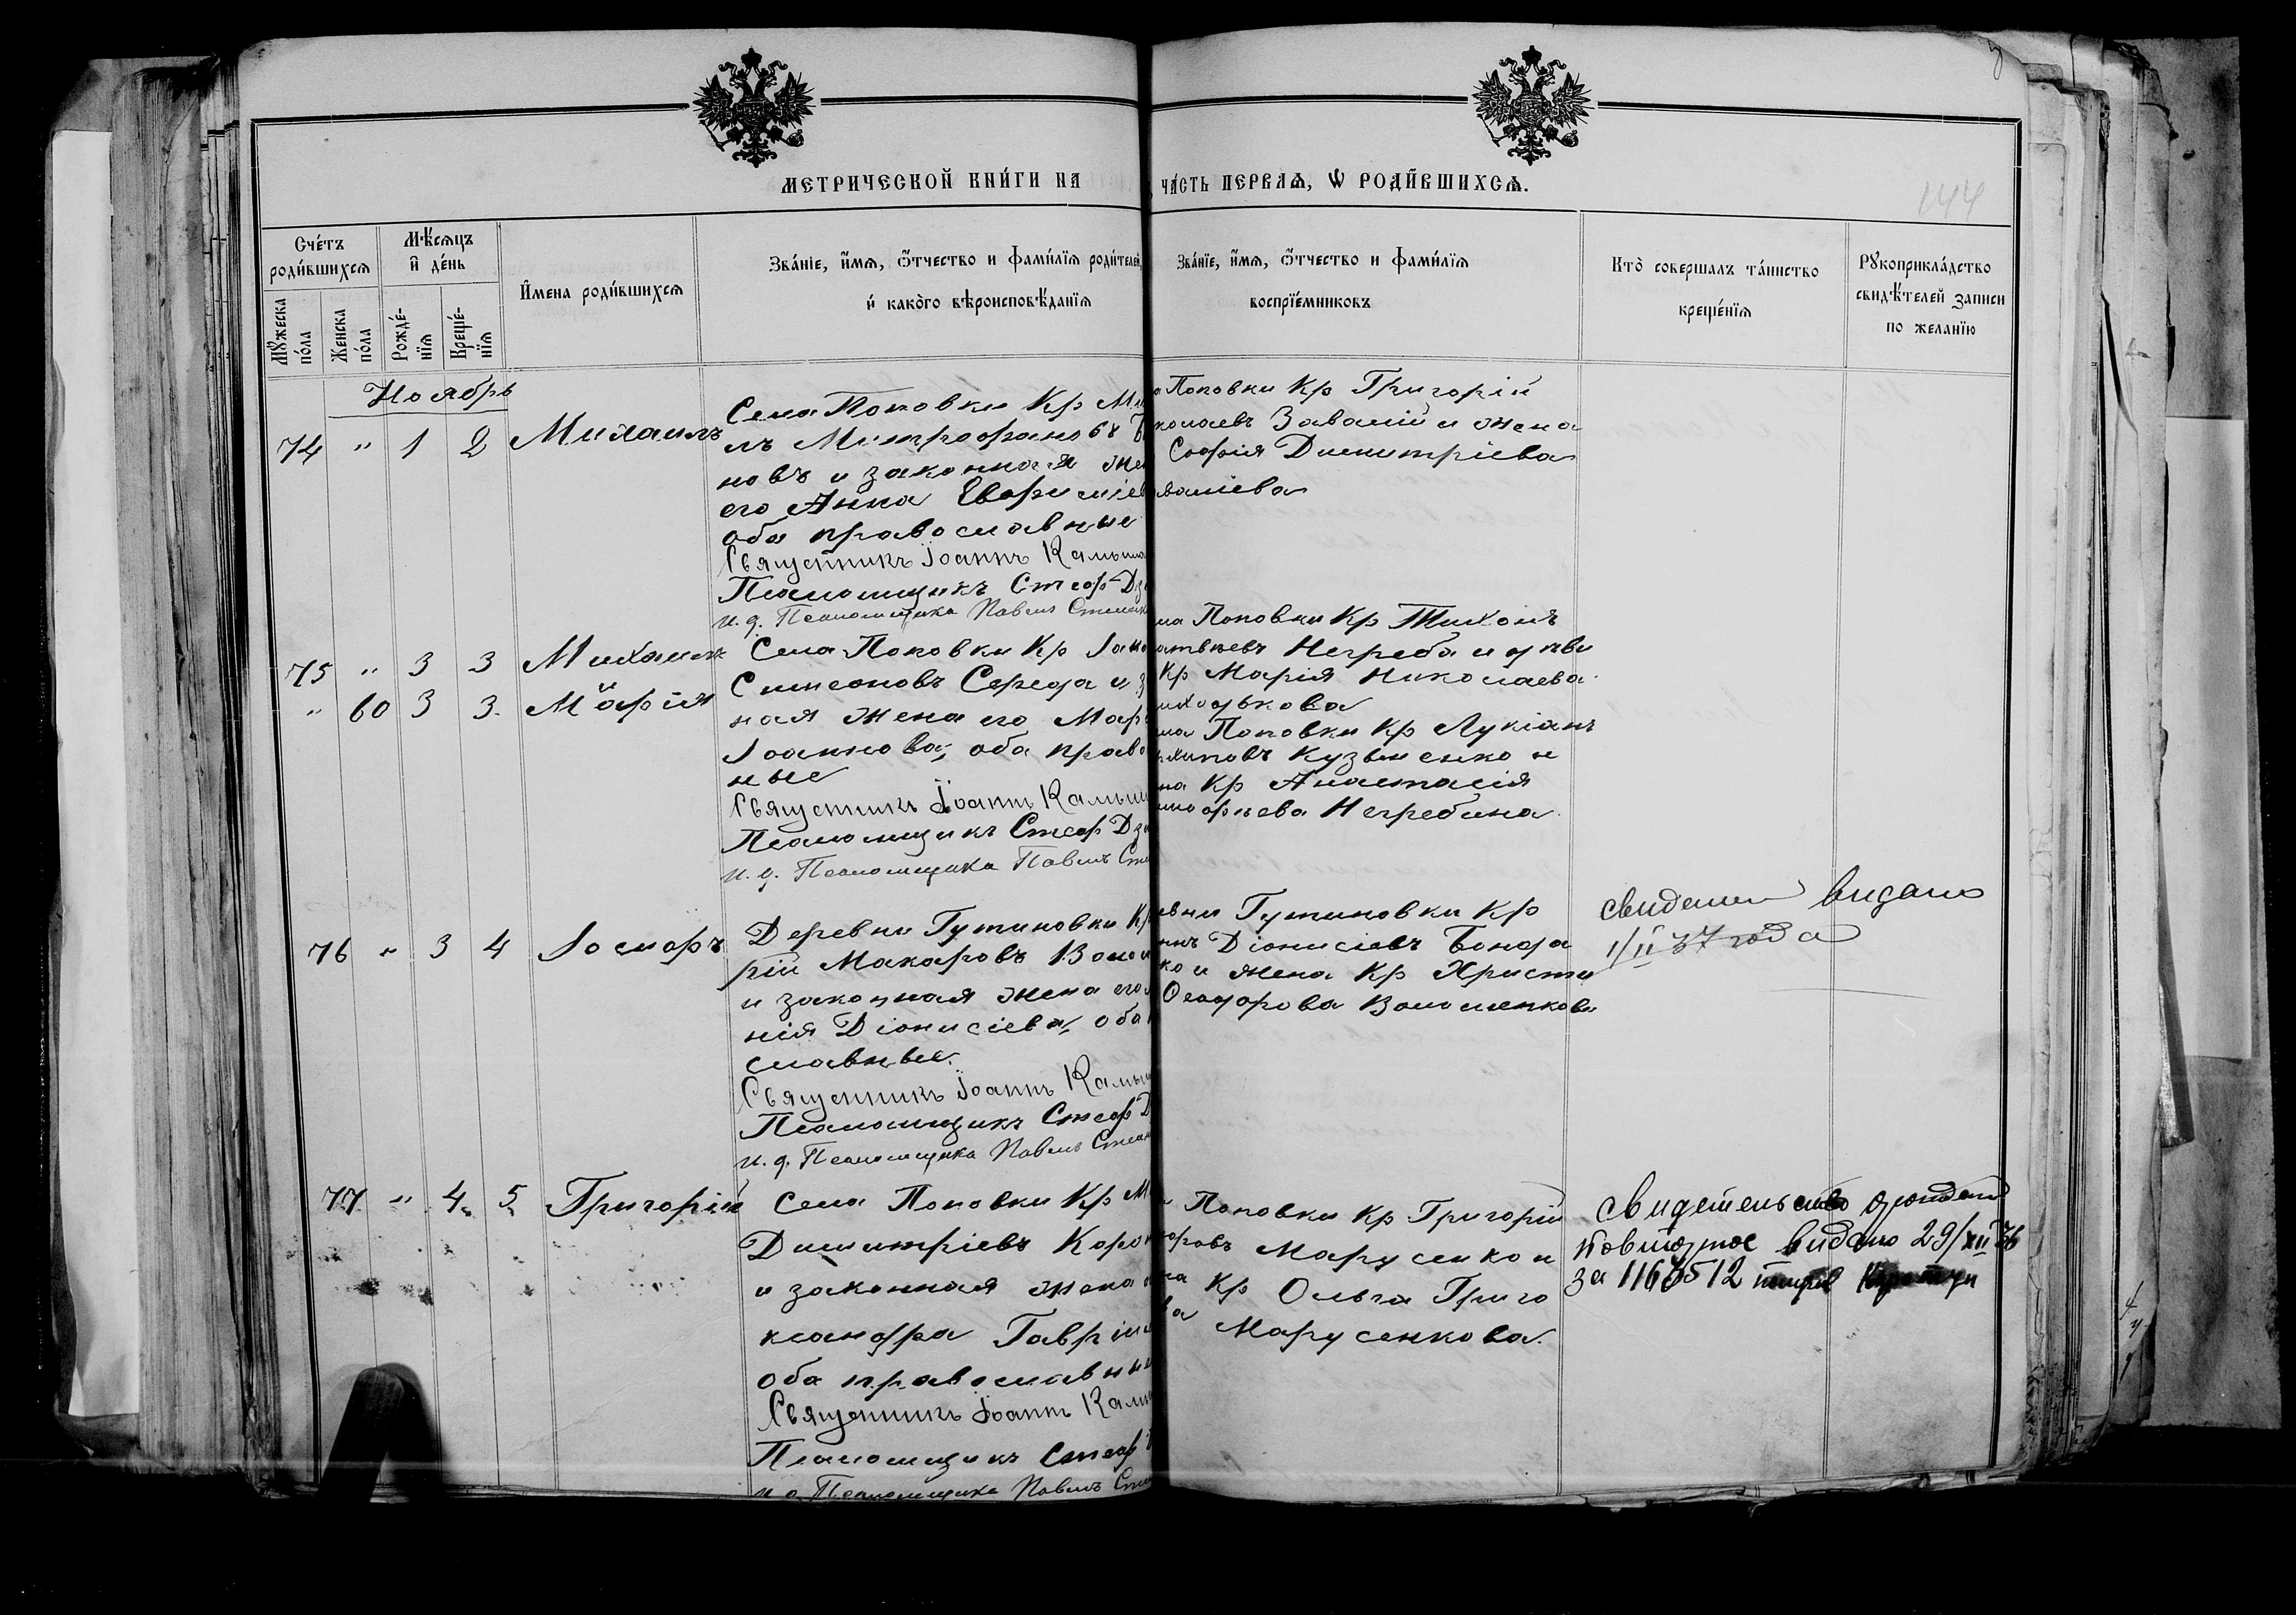 МЕТРИЧЕСКОЙ КНИ́ГИ НА
ЧА́СТЬ ПЕРВАѦ, Ѡ РОДИ́ВШИХСѦ.
144
Сче́тъ роди́вшихсѧ
Мꙋ́жеска по́ла
Женска по́ла
Мѣ́сѧцъ и҆ де́нь
Рожде́нїѧ
Креще́нїѧ
И҆мена роди́вшихсѧ
Зва́нїе, и҆́мѧ, ѻ҆́тчество и фами́лїѧ роди́телей,
и҆ како́гѡ вѣроисповѣ́данїѧ
Зва́нїе, и҆́мѧ, ѻ҆́тчество и фами́лїѧ
воспрїе́мниковъ
Кто̀ соверша́лъ та́инство
креще́нїѧ
Рꙋкоприкла́дство
свидѣ́телей записи
по желанїю
Ноябрь
74 " 1 2 Михаилъ
Села Поповки Кр Ми
лъ Митрофановъ
новъ и законная жен
его Анна Евфиміев
оба православные
Священникъ Іоаннъ Камыш
Псаломщикъ Стеф Дз
и. д. Псаломщика Павелъ
Поповки Кр Григорій
колаевъ Завалій и жена
Софія Димитріева
валіева
75 " 3 3 Михаилъ
" 60 3 3 Марія
Села Поповки Кр Іак
Симеоновъ Середа и з
ная жена его Мар
Іоаннова, оба право
ные
Священникъ Іоаннъ Камыш
Псаломщикъ Стеф Дз
и. д. Псаломщика Павелъ
ла Поповки Кр Тихонъ
атвѣевъ Негреба и дѣви
Кр Марія Николаева
иходькова
ла Поповки Кр Лукіанъ
рхиповъ Кузьменко и
на Кр Анастасія
мофѣева Негребина
76 " 3 4 Іосифъ
Деревни Гутиновки Кр
рій Макаровъ Воло
и законная жена его
нія Діонисіева, оба
славные.
Священникъ Іоаннъ Камыш
Псаломщикъ Стеф Д
и. д. Псаломщика Павелъ
евни Гутиновки Кр
нъ Діонисіевъ Бонда
ко и жена Кр Христи
Ѳеодорова Волошенкова
видано
1/II 37 года
77 " 4 5 Григорій
Села Поповки Кр М
Димитріевъ Коро
и законная жена
ксандра Гавріил
оба православны
Священникъ Іоаннъ Кам
Псаломщикъ Стеф
и д Псаломщика Павелъ
Поповки Кр Григорій
оровъ Марусенко и
на Кр Ольга Григо
ва Марусенкова.
свидетельство
повторное видано 29/XII 36
за